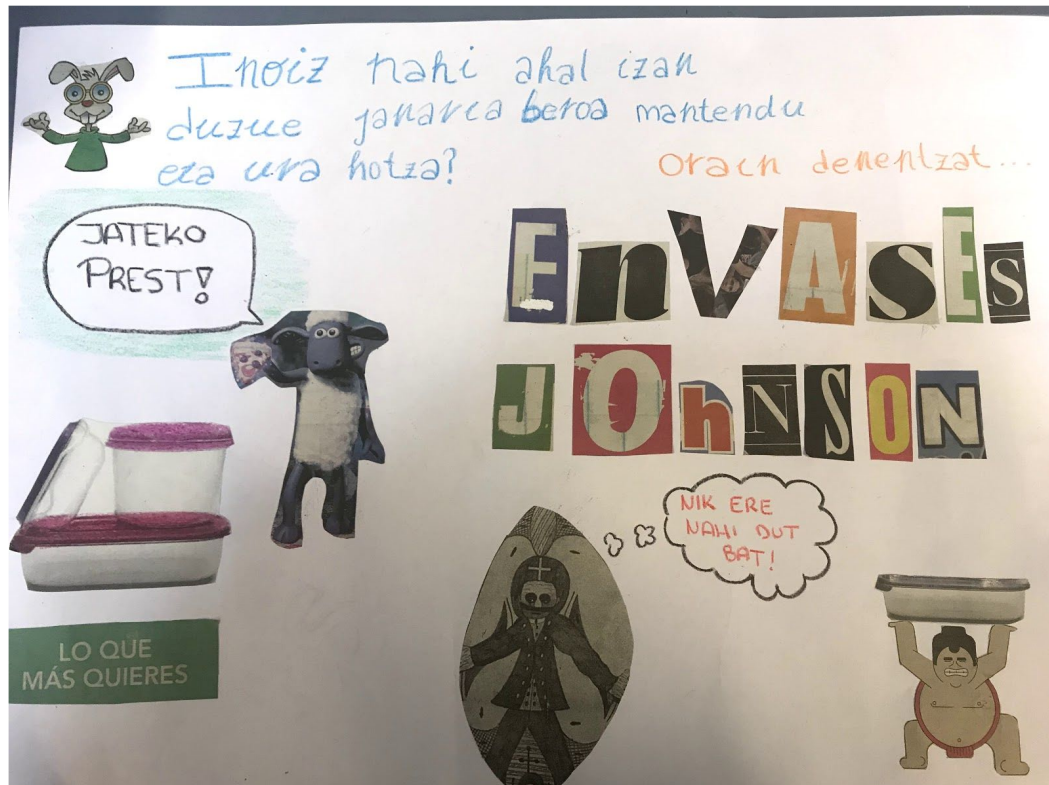 Inoiz nahi ahal izan
duzue janaria beroa mantendu
eta ura hotza?
Orain denentzat...
JATEKO
PREST!
EnVASES
JOhNSON
NIK ERE
NAHI DUT
BAT!
LO QUE
MÁS QUIERES